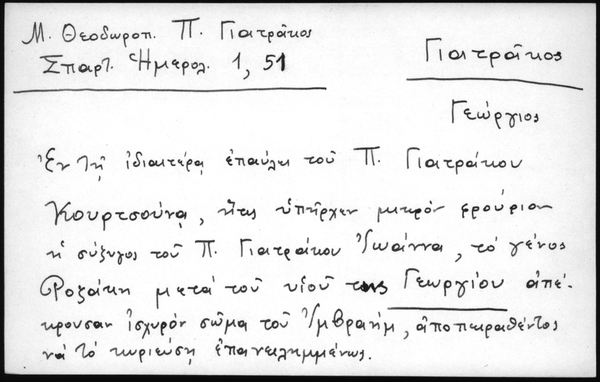 Μ. Θεοδωροπ. Π. Γιατρᾶκος
Σπαρτ. Ἡμερολ. 1, 51
Γιατρᾶκος
Γεώργιος
Ἐν τῇ ἰδιαιτέρᾳ ἐπαύλει τοῦ Π. Γιατράκου
Κουρτσούνᾳ, ἥτις ὑπῆρχεν μικρόν φρούριον
ἡ σύζυγος τοῦ Π. Γιατράκου Ἰωάννα, τό γένος
Ροζάκη μετά τοῦ υἱοῦ της Γεωργίου ἀπέ-
κρουσαν ἰσχυρόν σῶμα τοῦ Ἰμβραήμ, ἀποπειραθέντος
νά τό κυριεύσῃ ἐπανειλημμένως.